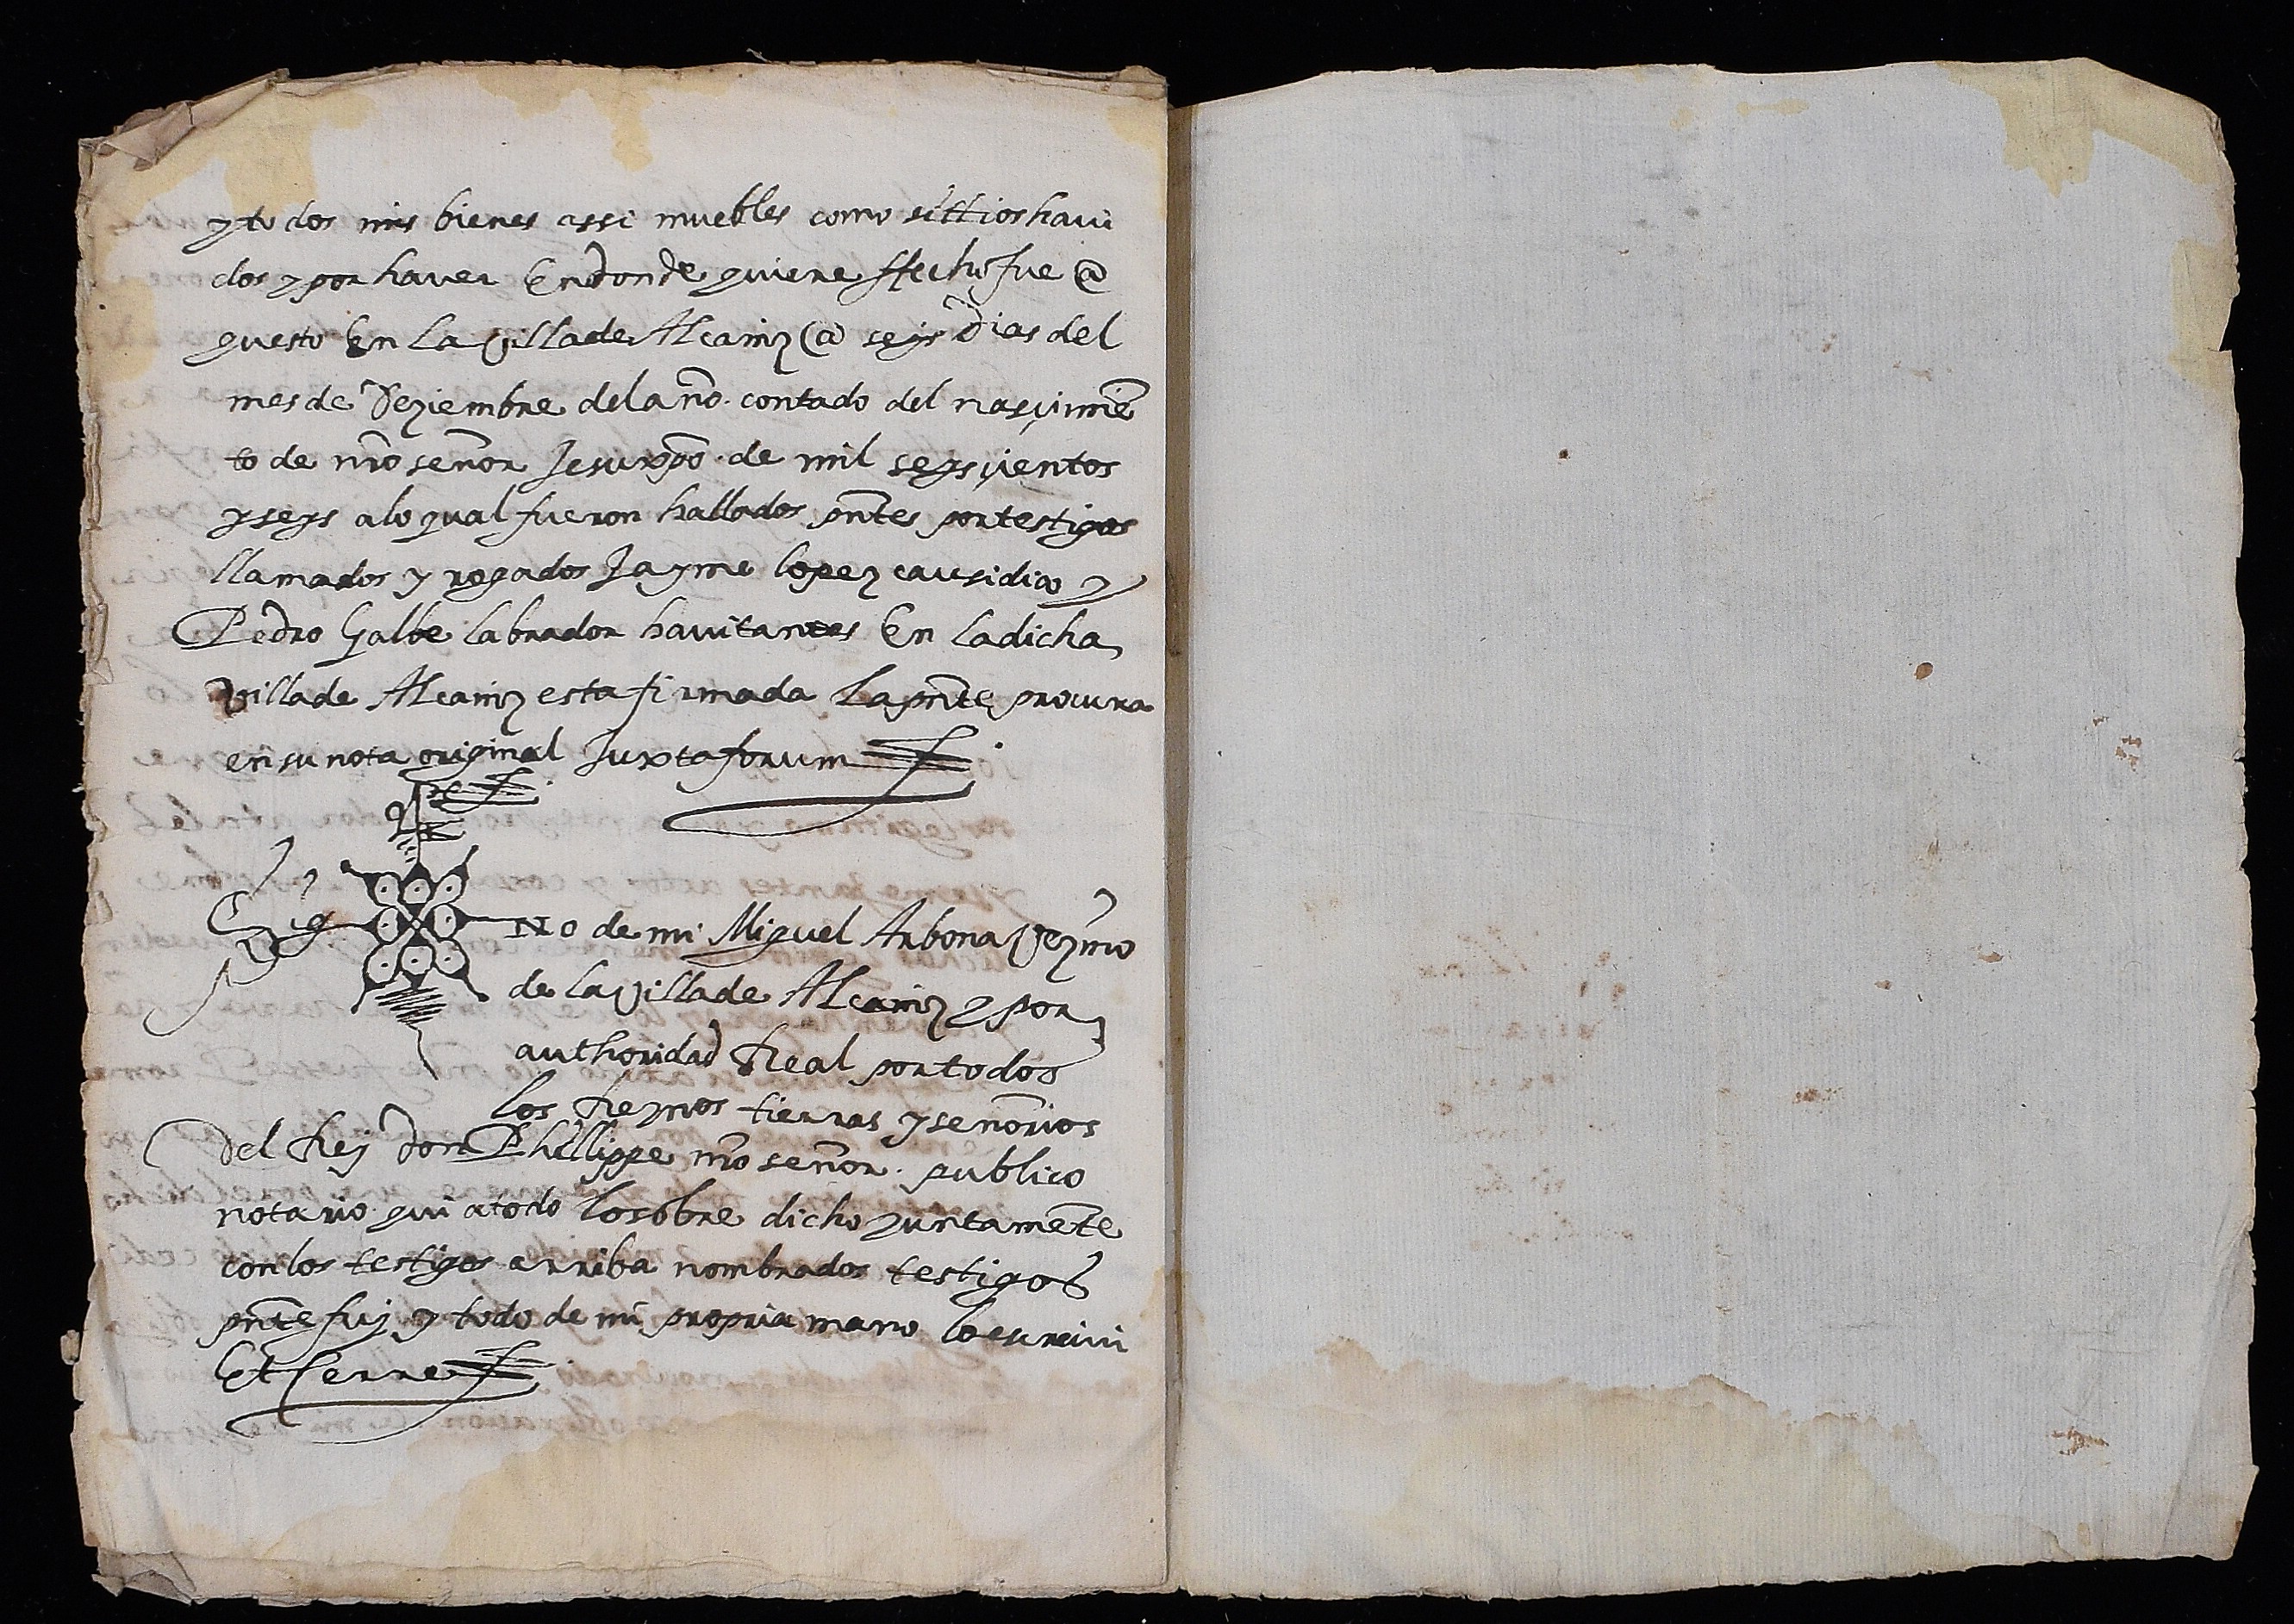 y todos mis bienes assi muebles como sittios havi
dos y por haver En donde quiere ffecho fue @
questo En la villa de Alcañiz @ seys dias del
mes de Deziembre del año contado del nasçimiẽ
to de nr̃o señor Jesuxp̃o de mil seysçientos
y seys a lo qual fueron hallados pñtes por testigos
llamados y rogados Jayme lopez causidico y
Pedro Galbe labrador havitantes En la dicha
villa de Alcañiz esta firmada la pñte procura
en su nota original Juxta forum
Sig No de mi Miguel Arbona vezino
de la villa de Alcañiz y por
authoridad Real por todos
los Reynos tierras y señorios
Del Rey don Phillippe nr̃o señor publico
notario qui a todo lo sobre dicho juntamẽte
con los testigos arriba nombrados testigos
pñte fuy y todo de mi propria mano lo escrivi
Et Cerre